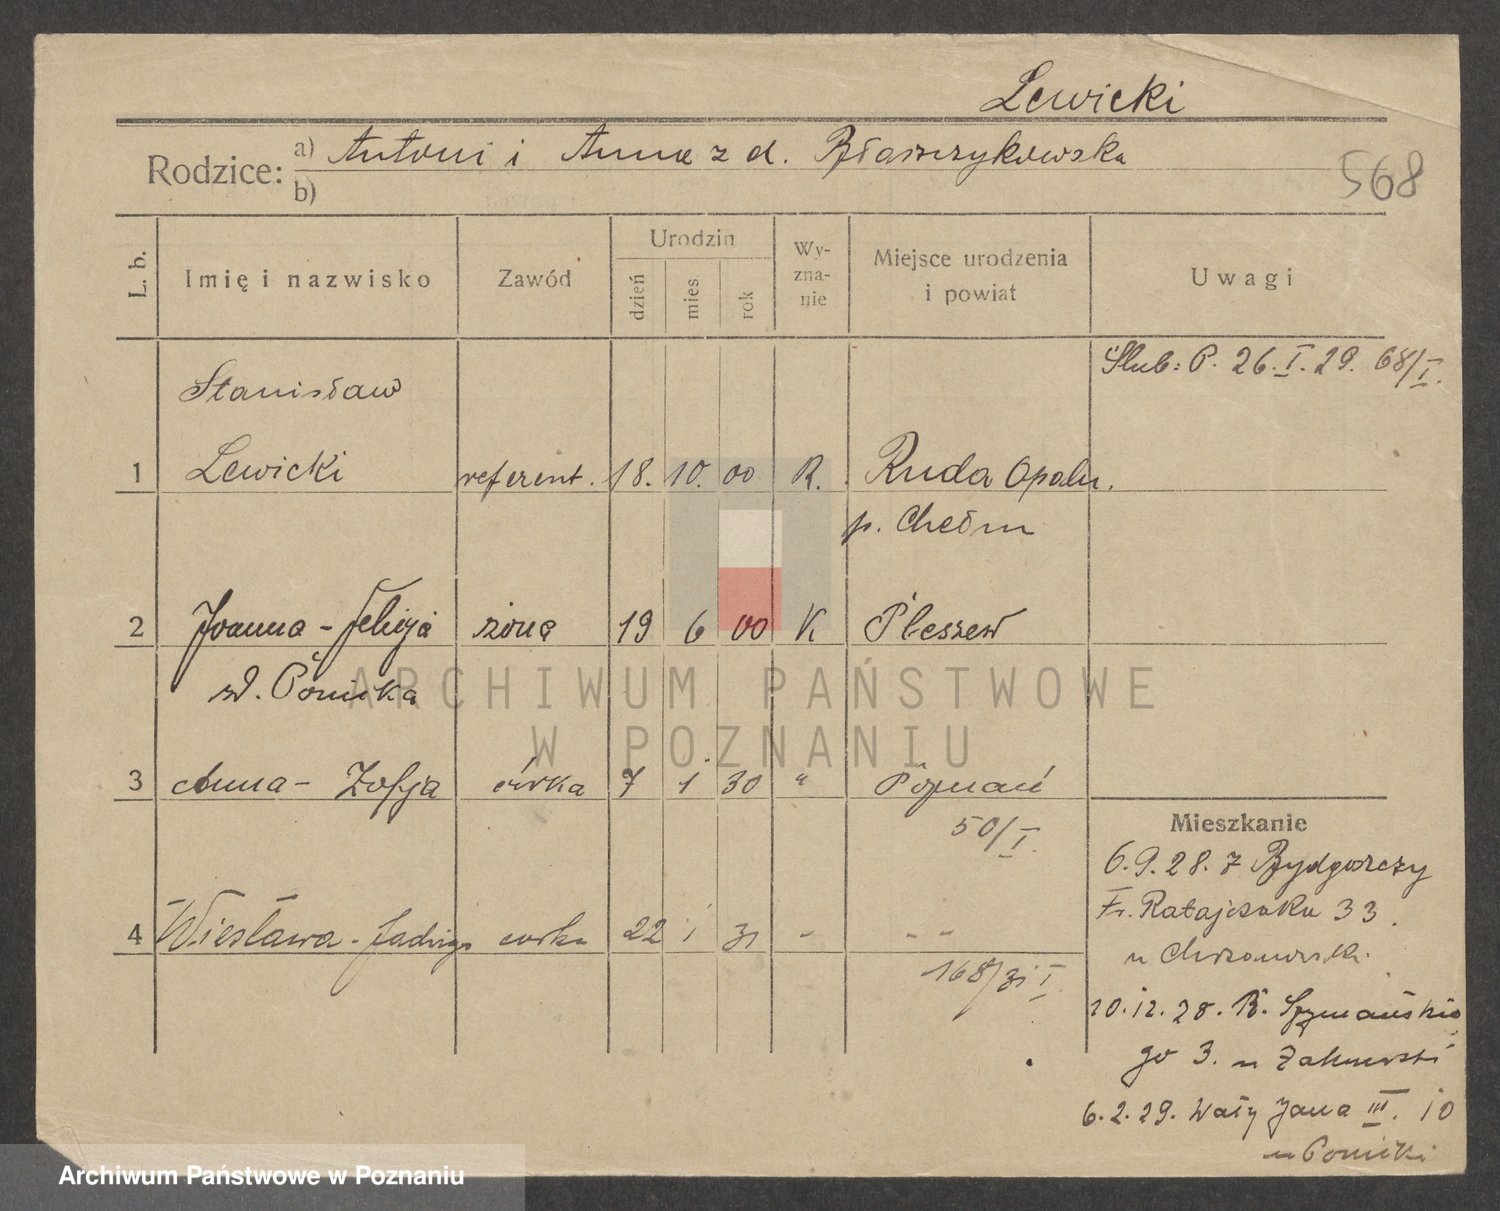 Lewicki
Rodzice: a) Antoni i Anna z d. Błaszczykowska
b)
568
L. b. Imię i nazwisko Zawód Urodzin dzień mies. rok Wy-zna-nie Miejsce urodzenia i powiat Uwagi
Ślub: P. 26.I.29. 68/I.
Stanisław
1 Lewicki referent. 18. 10. 00 R. Ruda Opalu.
p. Chełm
2 Joanna - Felicja żona 19 6 00 K Pleszew
zd. Ponicka
3 Anna - Zofja córka 7 1 30 " Poznań
50/I.
4 Wiesława - Jadwiga córka 22 1 31 " " "
168/31 I.
Mieszkanie
6.9.28. z Bydgoszczy
Fr. Ratajczaka 33.
u
10.12.28. R. Szymańskie
go 3. u
6.2.29. Wały Jana III. 10
u Ponicki
ARCHIWUM PAŃSTWOWE
W POZNANIU
Archiwum Państwowe w Poznaniu